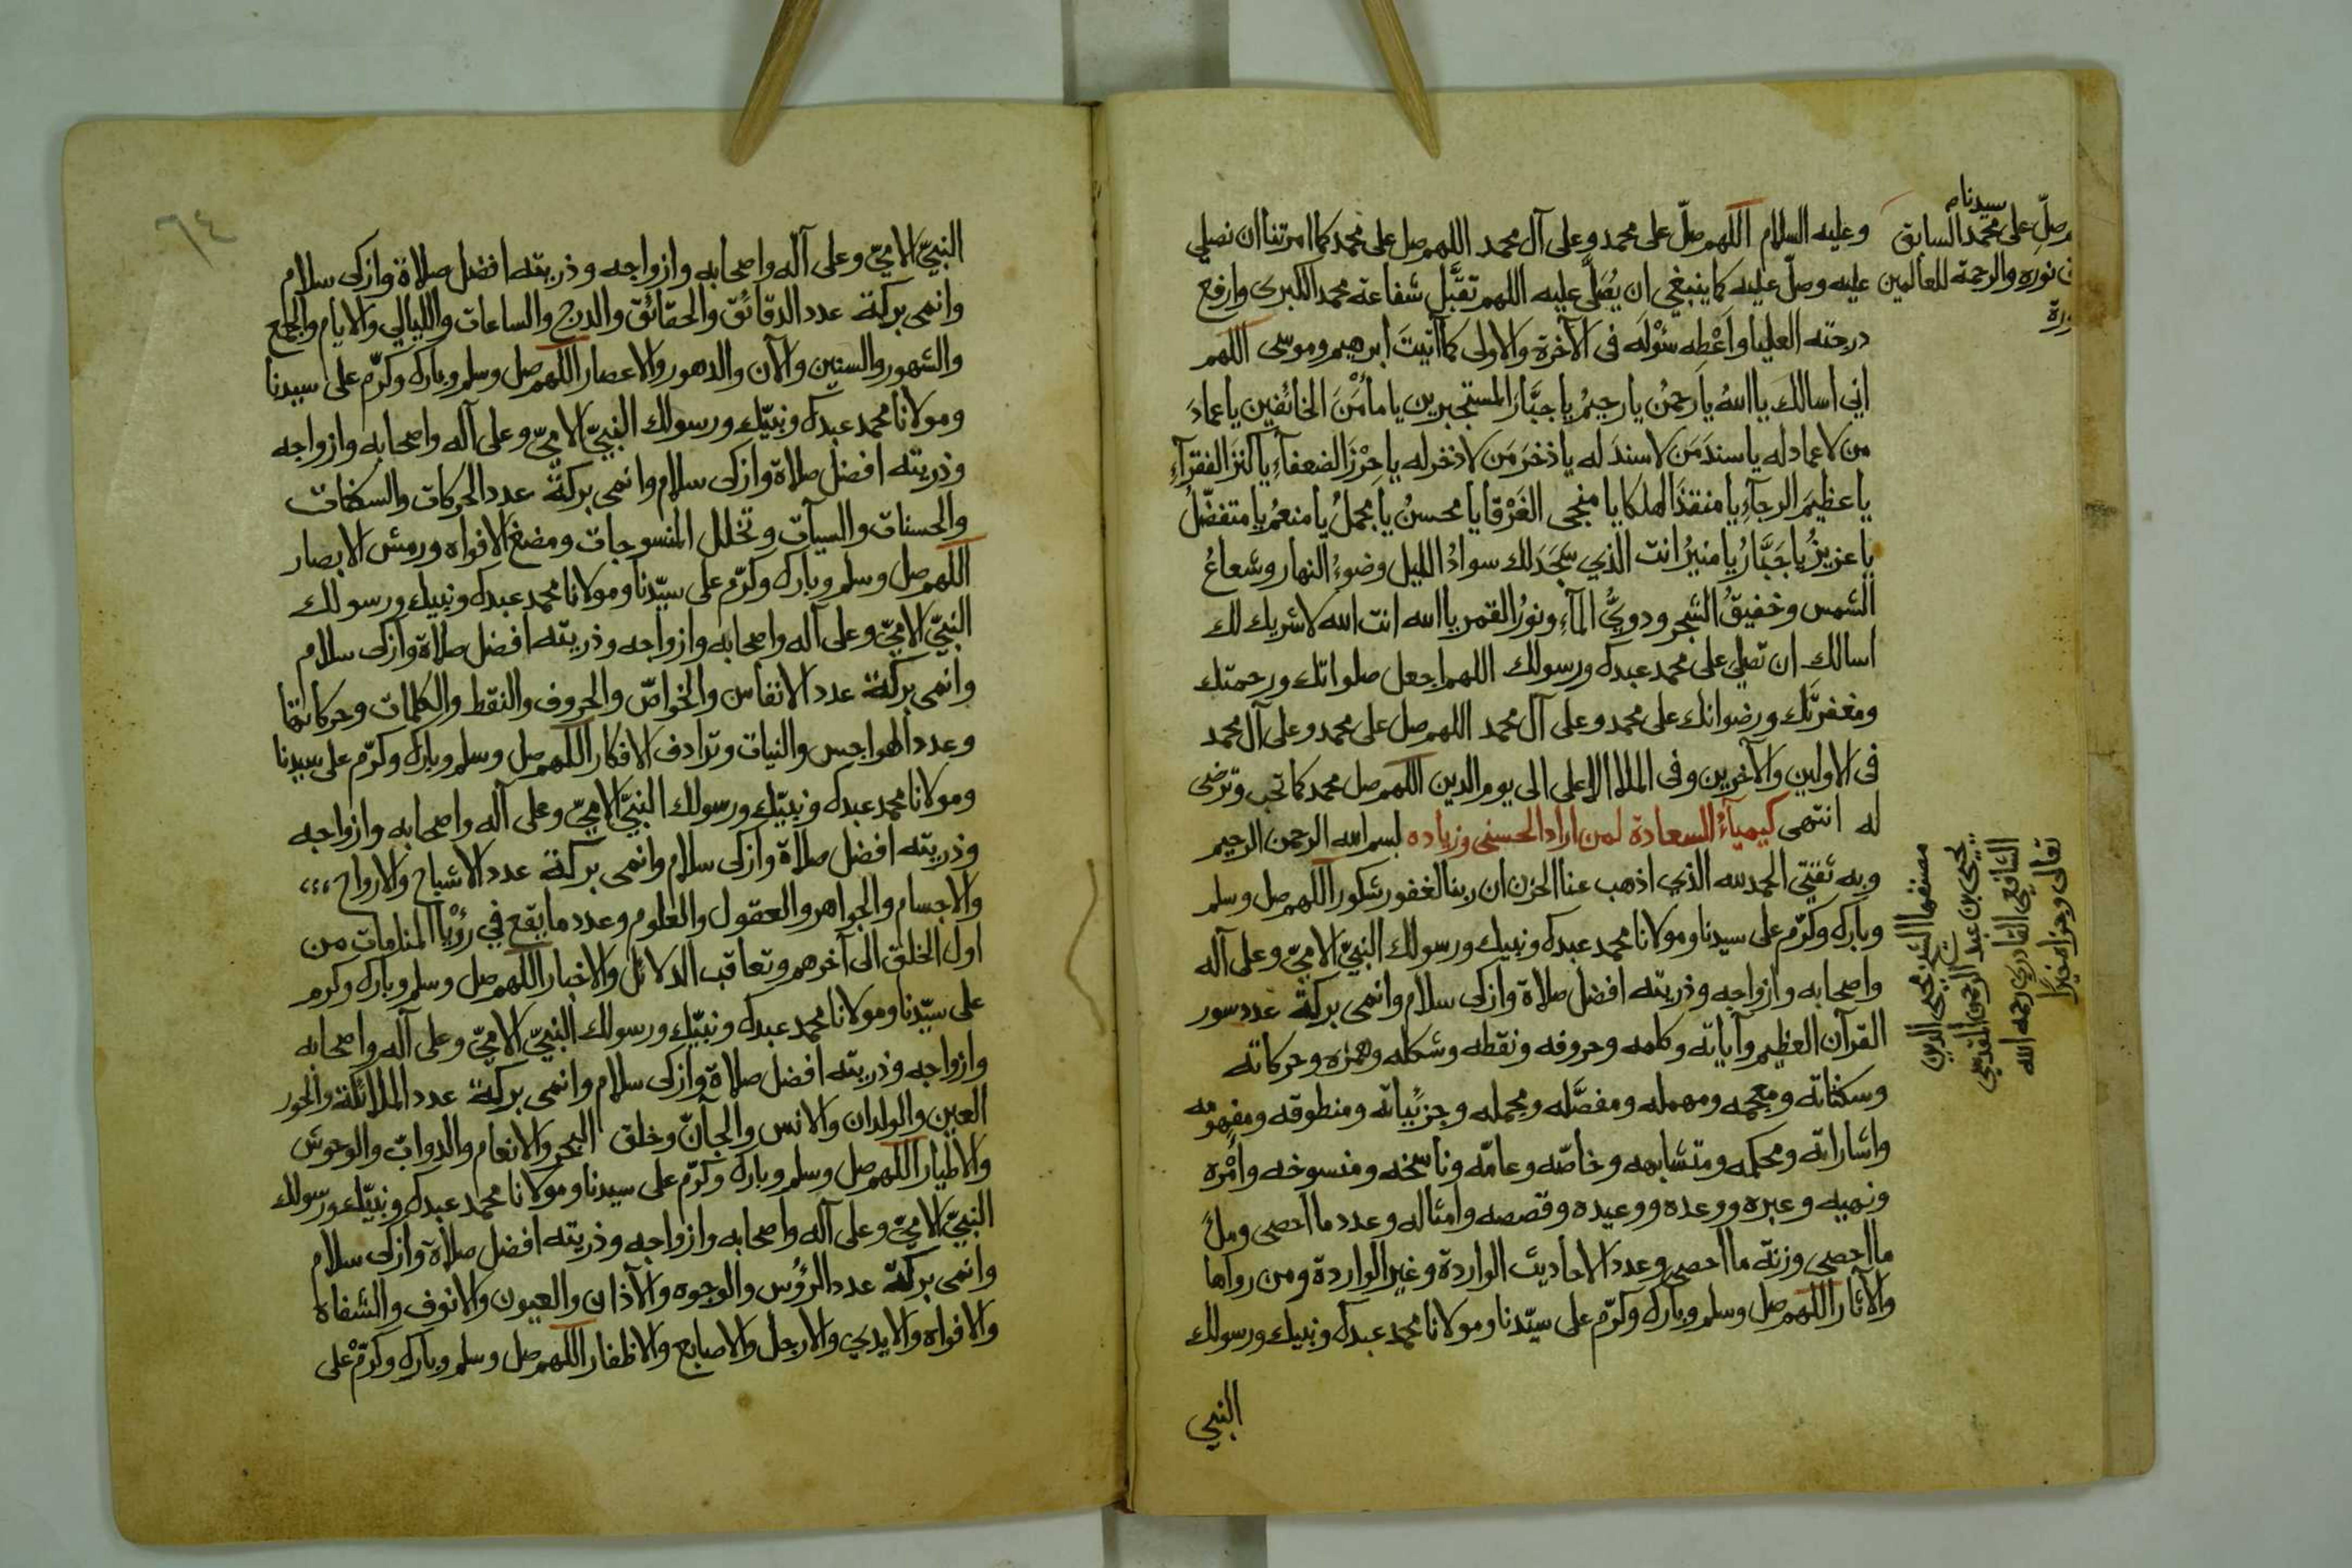 وعليه السلام اللهم صلّ على محمد وعلى آل محمد اللهم صل على محمد كما امرتنا ان نصلي
عليه وصلّ عليه كما ينبغي ان يُصَلَّى عليه اللهم تقبَّل شفاعة محمد الكبرى وارفع
درجته العليا واَعْطِه سُؤْلَه فى الآخرة والاولى كما آتيتَ ابرهيم وموسى اللهم
اني اسالك يا اللهُ يا رحمنُ يا رحيمُ يا جبَّارَ المستجيرين يا مأمَنَ الخائفين يا عمادَ
من لا عماد له يا سندَ مَن لا سندَ له يا ذخرَ مَن لا ذخر له يا حِرْزَ الضعفآءِ يا كنزَ الفقرآءِ
يا عظيمَ الرجآءِ يا منقذَ الهلكا يا منجى الغَرْقا يا محسنُ يا مجملُ يا منعمُ يا متفضّلُ
يا عزيزُ يا جَبَّارُ يا منيرُ انت الذي سَجَدَ لك سوادُ الليل وضوءُ النهار وشعاعُ
الشمس وخفيقُ الشجر ودويُّ المآءِ ونورُ القمر يا الله انت الله لا شريك لك
اسالك ان تصلي على محمد عبدك ورسولك اللهم اجعل صلواتك ورحمتك
ومغفرتك ورضوانك على محمد وعلى آل محمد اللهم صل على محمد وعلى آل محمد
فى الاولين والآخرين وفى الملا الاعلى الى يوم الدين اللهم صل محمد كما تحب وترضى
له انتهى كيمياءُ السعادة لمن اراد الحسنى وزياده بسم الله الرحمن الرحيم
وبه ثقتي الحمد لله الذي اذهب عنا الحزن ان ربنا لغفور شكور اللهم صل وسلم
وبارك وكرّم على سيدنا ومولانا محمد عبدك ونبيك ورسولك النبيّ الاميّ وعلى آله
واصحابه وازواجه وذريته افضل صلاة وازكى سلام وانمى بركة عدد سور
القرآن العظيم وآياته وكلمه وحروفه ونقطه وشكله وهمزه وحركاته
وسكناته ومعجمه ومهمله ومفصَّله ومجمله وجزئياته ومنطوقه ومفهومه
واشاراته ومحكمه ومتشابهه وخاصّه وعامّه وناسخه ومنسوخه وامْره
ونهيه وعبره ووعده ووعيده وقصصه وامثاله وعدد ما احصى وملءَ
ما احصى وزنة ما احصى وعدد الاحاديث الواردة وغير الواردة ومن رواها
والآثار اللهم صل وسلم وبارك وكرّم على سيّدنا ومولانا محمد عبدك ونبيك ورسولك
النبي
صلّ على محمد السابق
سيدنا
نوره والرحمة للعالمين
مصنفها الشيخ محيى الدين
يحيى بن عبد الرحمن المقدسي
الشافعي القادري رحمه الله
تعالى وجزا خيرًا
٦٤
النبيّ الاميّ وعلى آله واصحابه وازواجه وذريته افضل صلاة وازكى سلام
وانمى بركة عدد الدقائق والحقائق والدرج والساعات والليالي والايام والجمع
والشهور والسنين والآن والدهور والاعصار اللهم صل وسلم وبارك وكرّم على سيدنا
ومولانا محمد عبدك ونبيّك ورسولك النبيّ الاميّ وعلى آله واصحابه وازواجه
وذريته افضل صلاة وازكى سلام وانمى بركة عدد الحركات والسكنات
والحسنات والسيآت وتخلل المنسوجات ومضغ الافواه ورمش الابصار
اللهم صل وسلم وبارك وكرّم على سيّدنا ومولانا محمد عبدك ونبيك ورسولك
النبيّ الاميّ وعلى آله واصحابه وازواجه وذريته افضل صلاة وازكى سلام
وانمى بركة عدد الانفاس والخواصّ والحروف والنقط والكلمات وحركاتها
وعدد الهواجس والنيات وترادف الافكار اللهم صل وسلم وبارك وكرّم على سيدنا
ومولانا محمد عبدك ونبيّك ورسولك النبيّ الاميّ وعلى آله واصحابه وازواجه
وذريته افضل صلاة وازكى سلام وانمى بركة عدد الاشباح والارواح
والاجسام والجواهر والعقول والعلوم وعدد ما يقع في رؤيا المنامات من
اول الخلق الى آخرهم وتعاقب الدلائل والاخبار اللهم صل وسلم وبارك وكرم
على سيّدنا ومولانا محمد عبدك ونبيّك ورسولك النبيّ الاميّ وعلى آله واصحابه
وازواجه وذريته افضل صلاة وازكى سلام وانمى بركة عدد الملائكة والحور
العين والولدان والانس والجآنّ وخلق البحر والانعام والدوابّ والوحوش
والاطيار اللهم صل وسلم وبارك وكرّم على سيدنا ومولانا محمد عبدك ونبيّك ورسولك
النبيّ الاميّ وعلى آله واصحابه وازواجه وذريته افضل صلاة وازكى سلام
وانمى بركة عدد الرؤس والوجوه والآذان والعيون والانوف والشفاه
والافواه والايدي والارجل والاصابع والاظفار اللهم صل وسلم وبارك وكرّم على